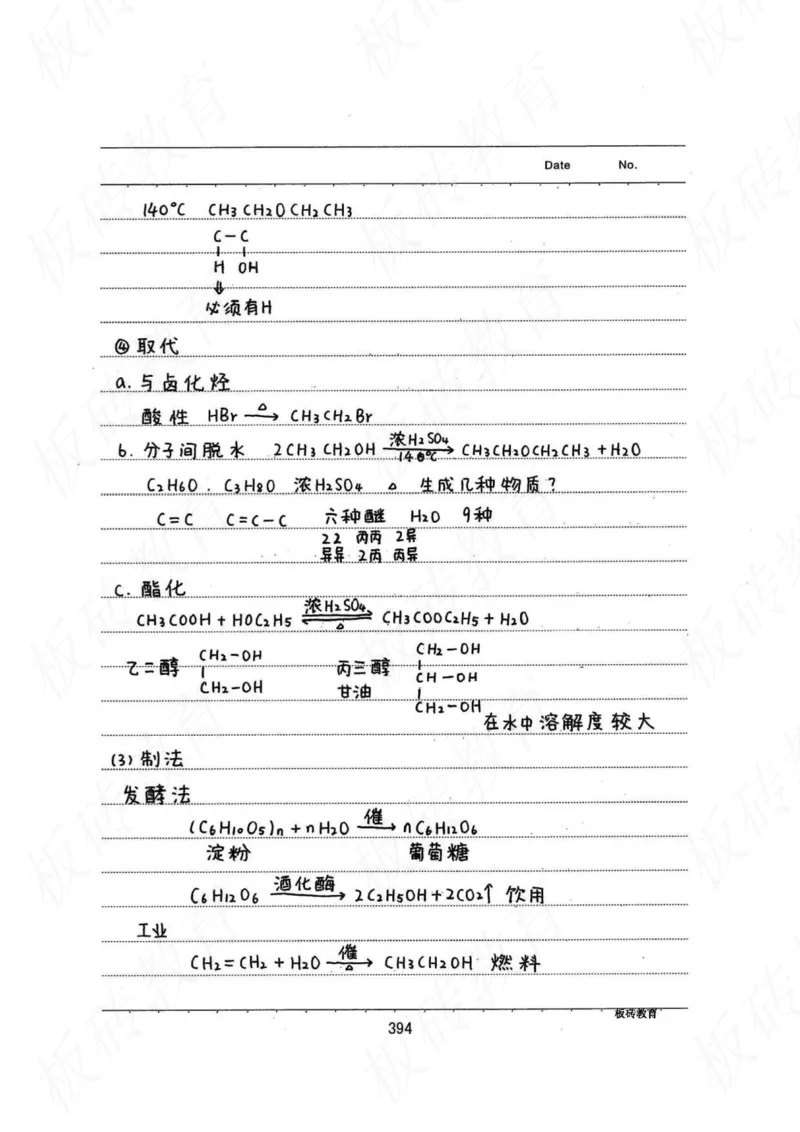 Date No.
140°C CH3CH2OCH2CH3
C-C
H OH
⇓
必须有H
④取代
a. 与卤化烃
酸性 HBr —△→ CH3CH2Br
b. 分子间脱水 2CH3CH2OH —浓H2SO4/140℃→ CH3CH2OCH2CH3 + H2O
C2H6O . C3H8O 浓H2SO4 △ 生成几种物质?
C=C C=C-C 六种醚 H2O 9种
22 丙丙 2异
异异 2丙 丙异
C. 酯化
CH3COOH + HOC2H5 ⇌浓H2SO4/△ CH3COOC2H5 + H2O
乙二醇 CH2-OH
CH2-OH
丙三醇 甘油
CH2-OH
CH-OH
CH2-OH
在水中溶解度较大
(3) 制法
发酵法
(C6H10O5)n + nH2O —催→ nC6H12O6
淀粉 葡萄糖
C6H12O6 —酒化酶→ 2C2H5OH + 2CO2↑ 饮用
工业
CH2=CH2 + H2O —催/△→ CH3CH2OH 燃料
板砖教育
394